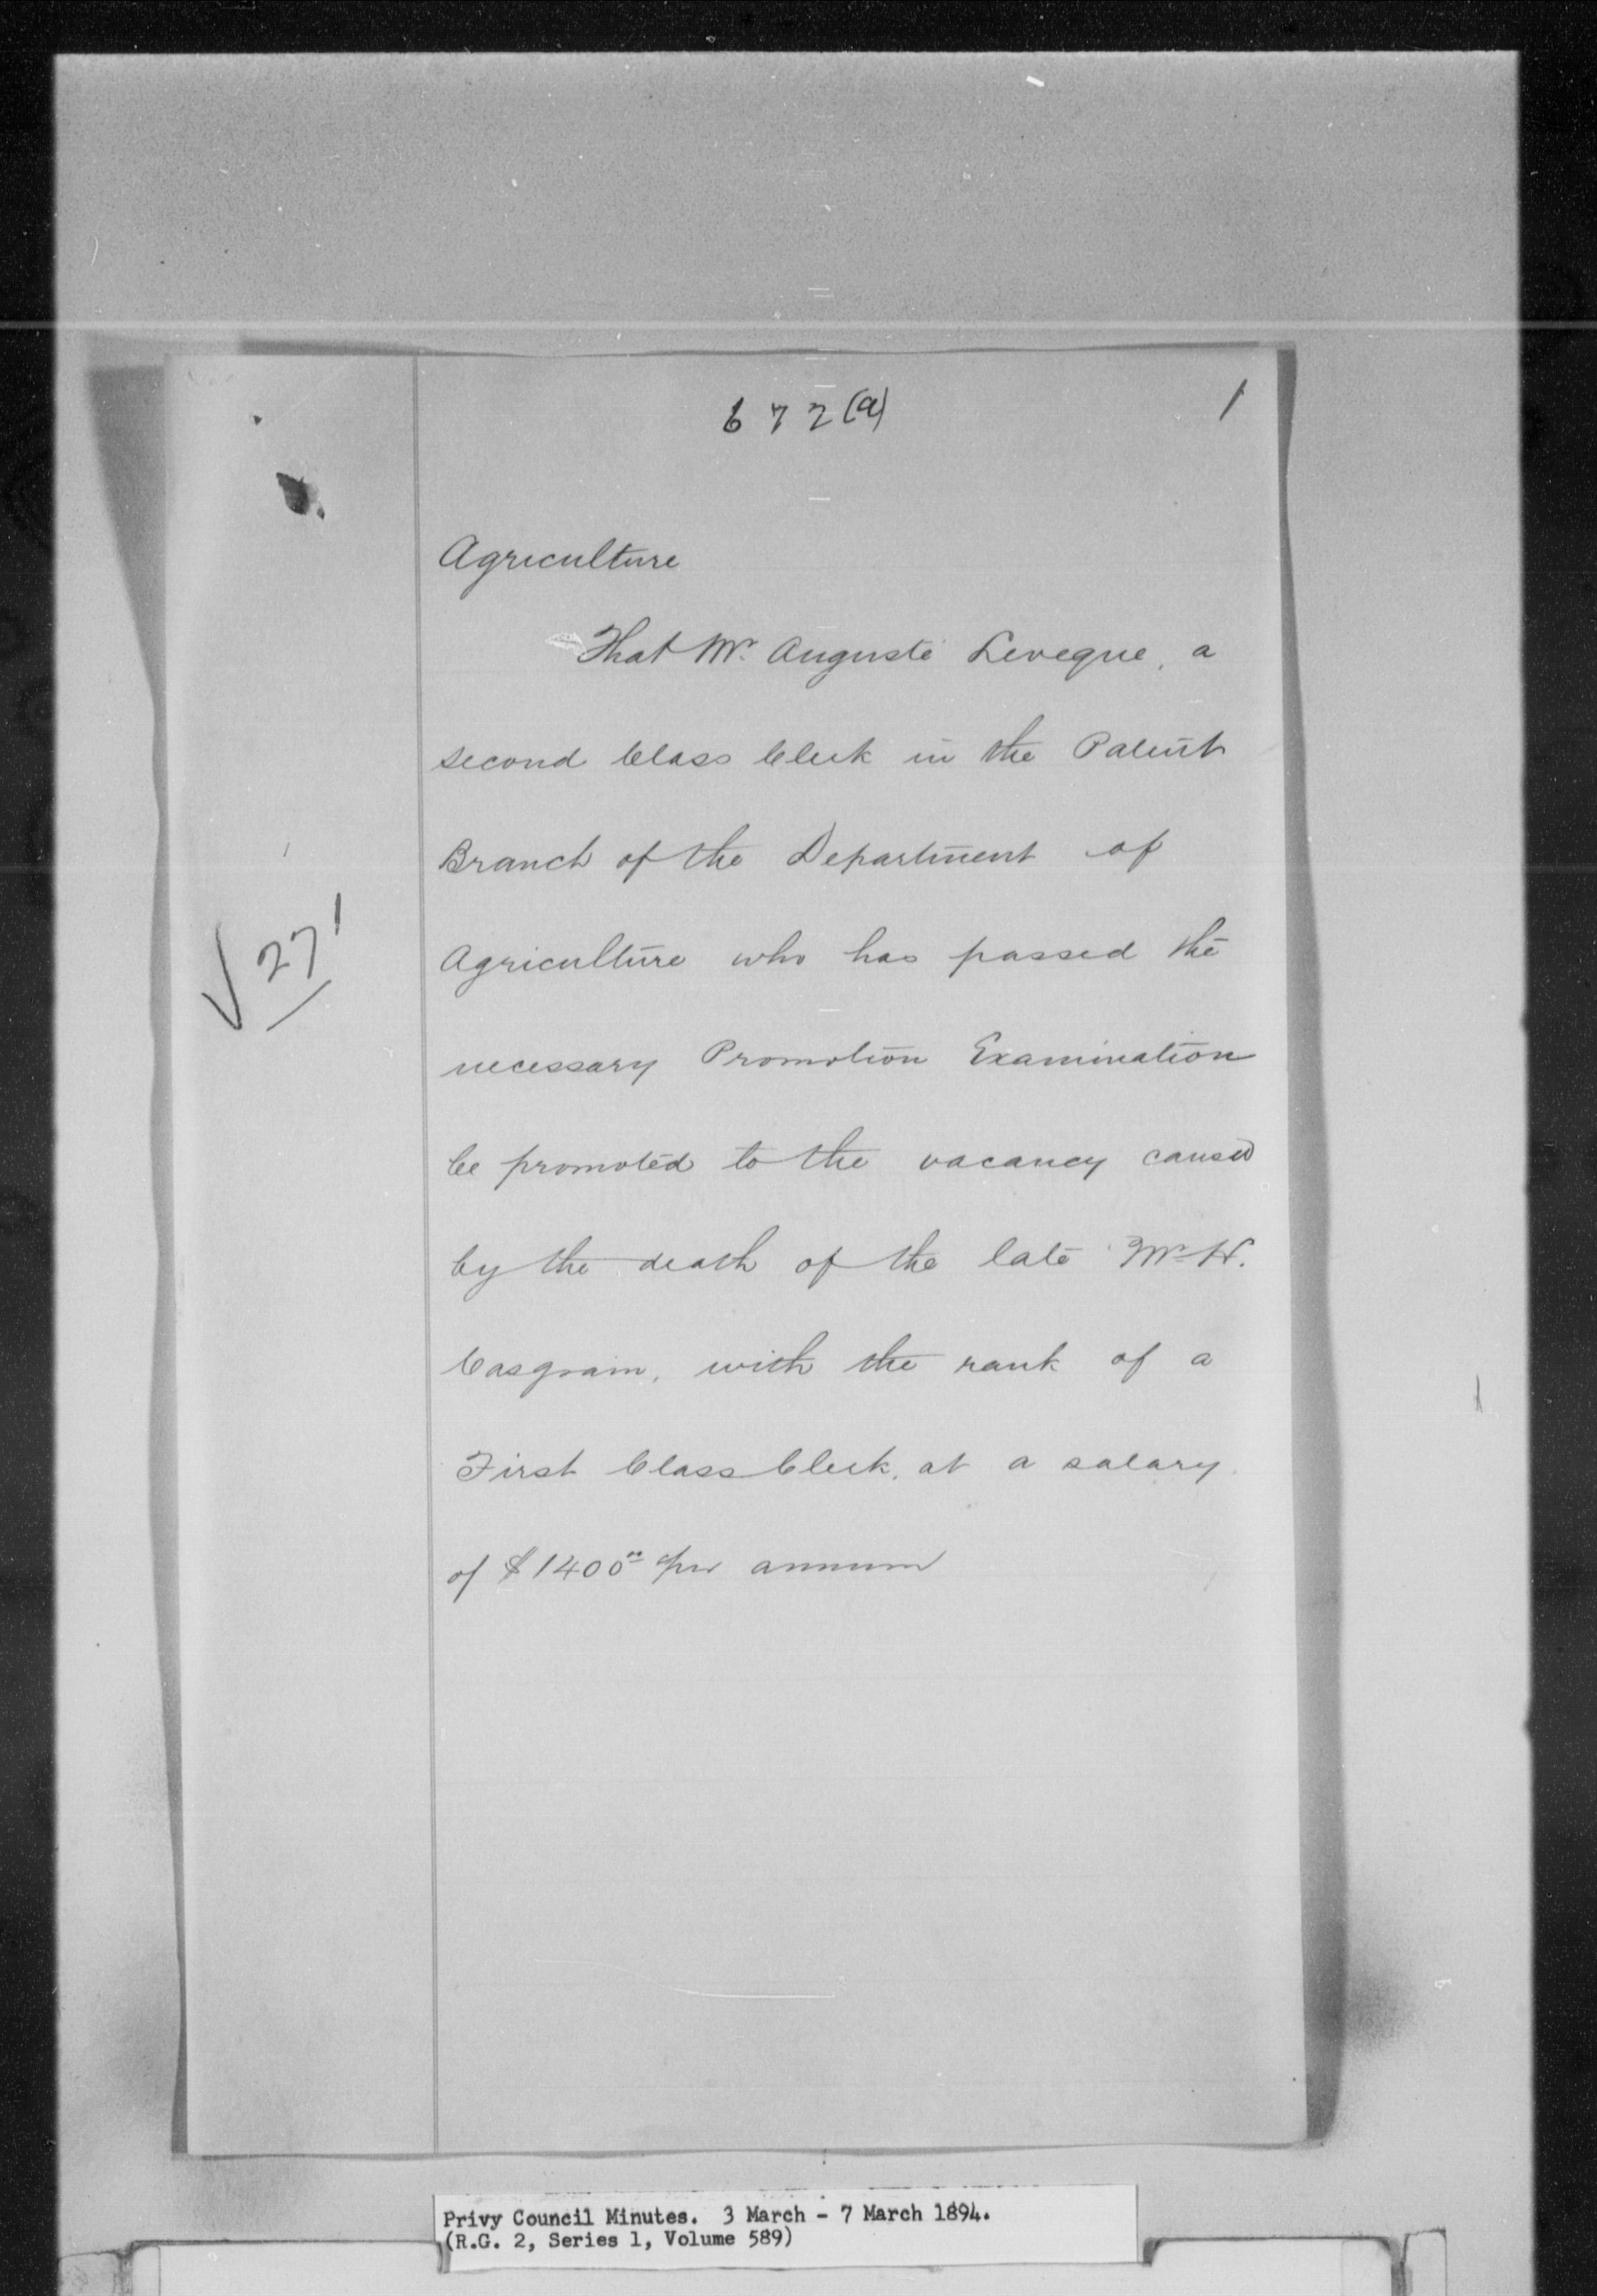 672(a)
1
Agriculture
That Mr. Auguste Leveque, a
second Class Clerk in the Patent
Branch of the Department of
Agriculture who has passed the
necessary Promotion Examination
be promoted to the vacancy caused
by the death of the late Mr H.
Casgrain, with the rank of a
First Class Clerk, at a salary
of $1400.00 per annum
√ 27
Privy Council Minutes. 3 March - 7 March 1894.
(R.G. 2, Series 1, Volume 589)